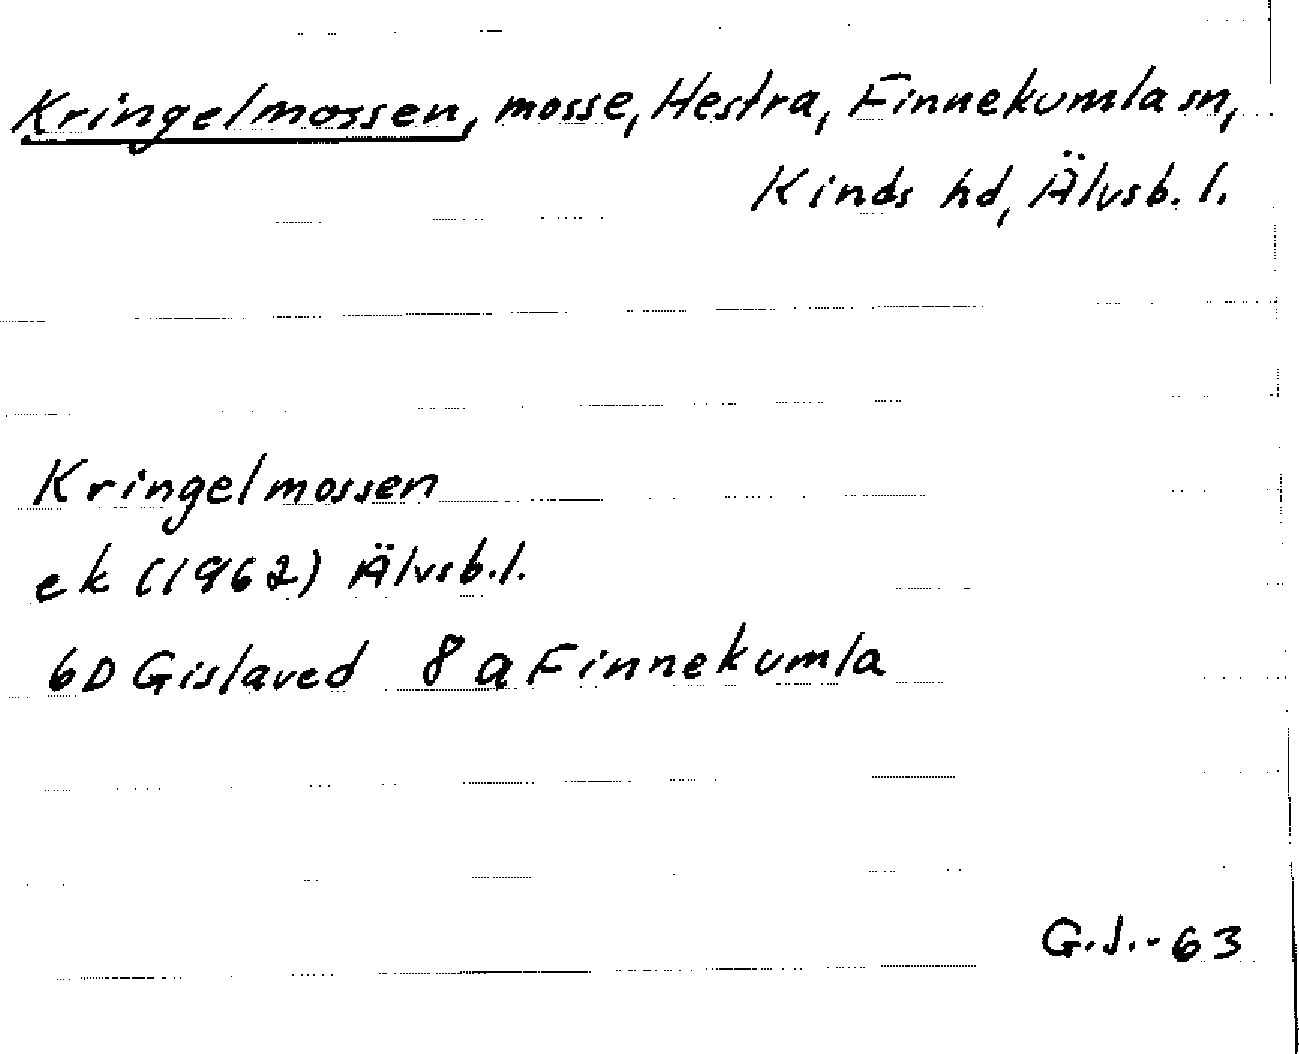 Kringelmossen, mosse, Hestra, Finnekumla sn,
Kinds hd, Älvsb. l.
Kringelmossen
ek (1962) Älvsb. l.
6D Gislaved 8 a Finnekumla
G.J.-63